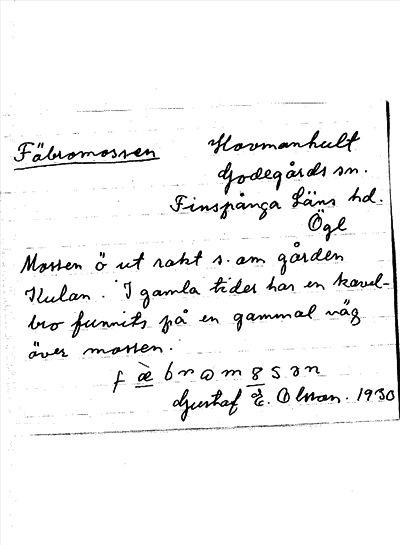 Fäbromossen
Hovmanhult
Godegårds sn.
Finspånga Läns hd.
Ögl
Mossen ö ut rakt s. om gården
Kulan. I gamla tider har en kavel-
bro funnits på en gammal väg
över mossen.
Gustaf E. Olsson. 1930